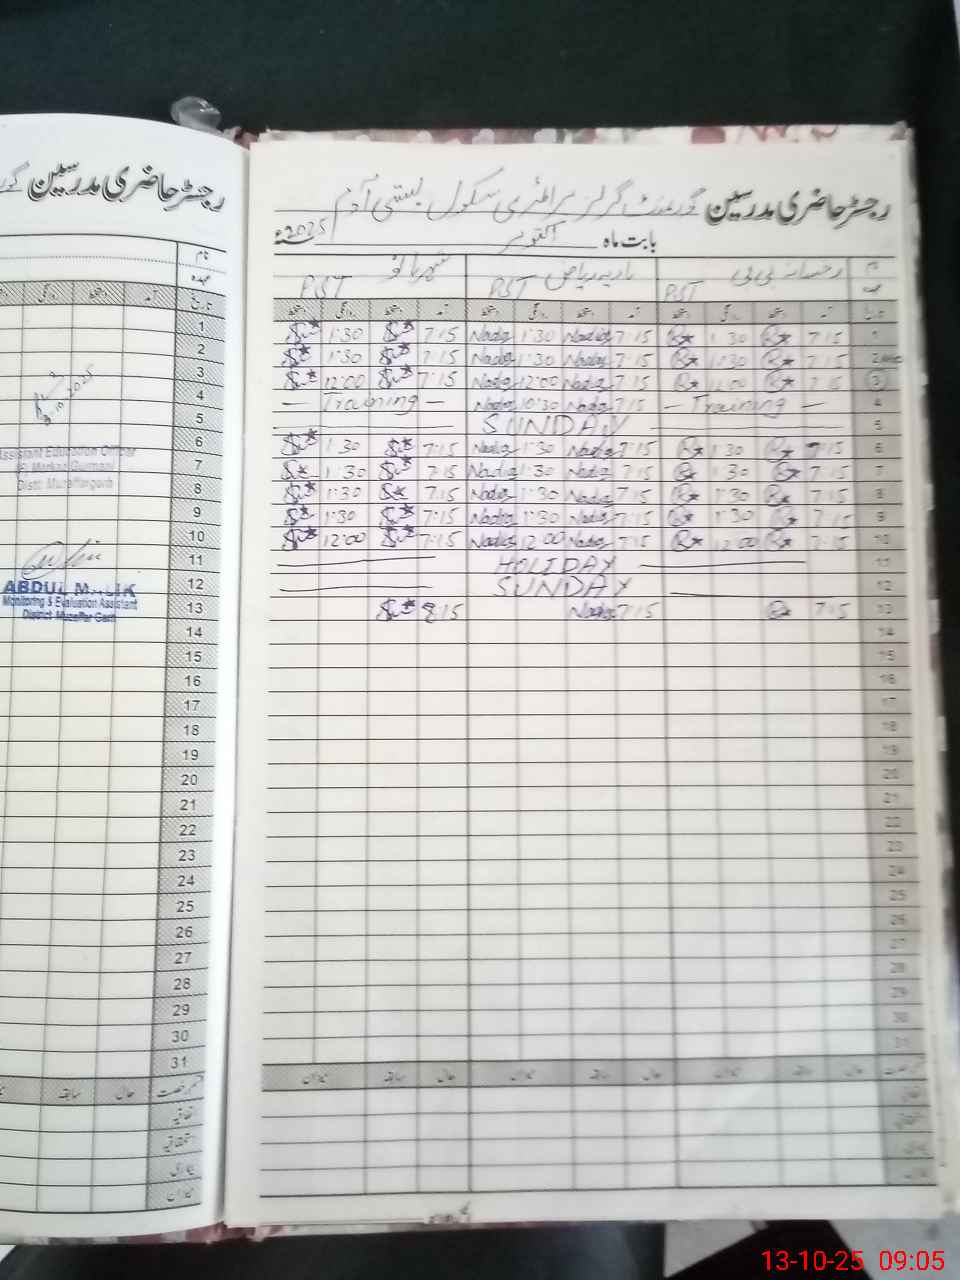 رجسٹر حاضری مدرسین گورنمنٹ گرلز پرائمری سکول بستی آدم
بابت ماہ اکتوبر 2025ء
نام رخسانہ بی بی شہر بانو
عہدہ PST PST PST
تاریخ آمد دستخط روانگی دستخط آمد دستخط روانگی دستخط آمد دستخط روانگی دستخط
1 7:15 1:30 7:15 Nadia 1:30 Nadia 7:15 1:30
2 7:15 1:30 7:15 Nadia 1:30 Nadia 7:15 1:30
3 7:15 12:00 7:15 Nadia 12:00 Nadia 7:15 12:00
4 — Training — 7:15 Nadia 10:30 Nadia — Training —
5 SUNDAY
6 7:15 1:30 7:15 Nadia 1:30 Nadia 7:15 1:30
7 7:15 1:30 7:15 Nadia 1:30 Nadia 7:15 1:30
8 7:15 1:30 7:15 Nadia 1:30 Nadia 7:15 1:30
9 7:15 1:30 7:15 Nadia 1:30 Nadia 7:15 1:30
10 7:15 12:00 7:15 Nadia 12:00 Nadia 7:15 12:00
11 HOLIDAY
12 SUNDAY
13 7:15 7:15 Nadia 8:15
14
15
16
17
18
19
20
21
22
23
24
25
26
27
28
29
30
31
میزان سابقہ حال میزان سابقہ حال میزان سابقہ حال
رجسٹر حاضری مدرسین
نام
عہدہ
تاریخ آمد دستخط روانگی
1
2
3
4
5
6
7
8
9
10
11
12
13
14
15
16
17
18
19
20
21
22
23
24
25
26
27
28
29
30
31
قسم رخصت حال سابقہ
اتفاقیہ
استحقاقیہ
بیماری
میزان
Assistant Education Officer
Markaz Gurmani
Distt: Muzaffargarh
ABDUL MALIK
Monitoring & Evaluation Assistant
District Muzaffar Garh
13-10-25 09:05